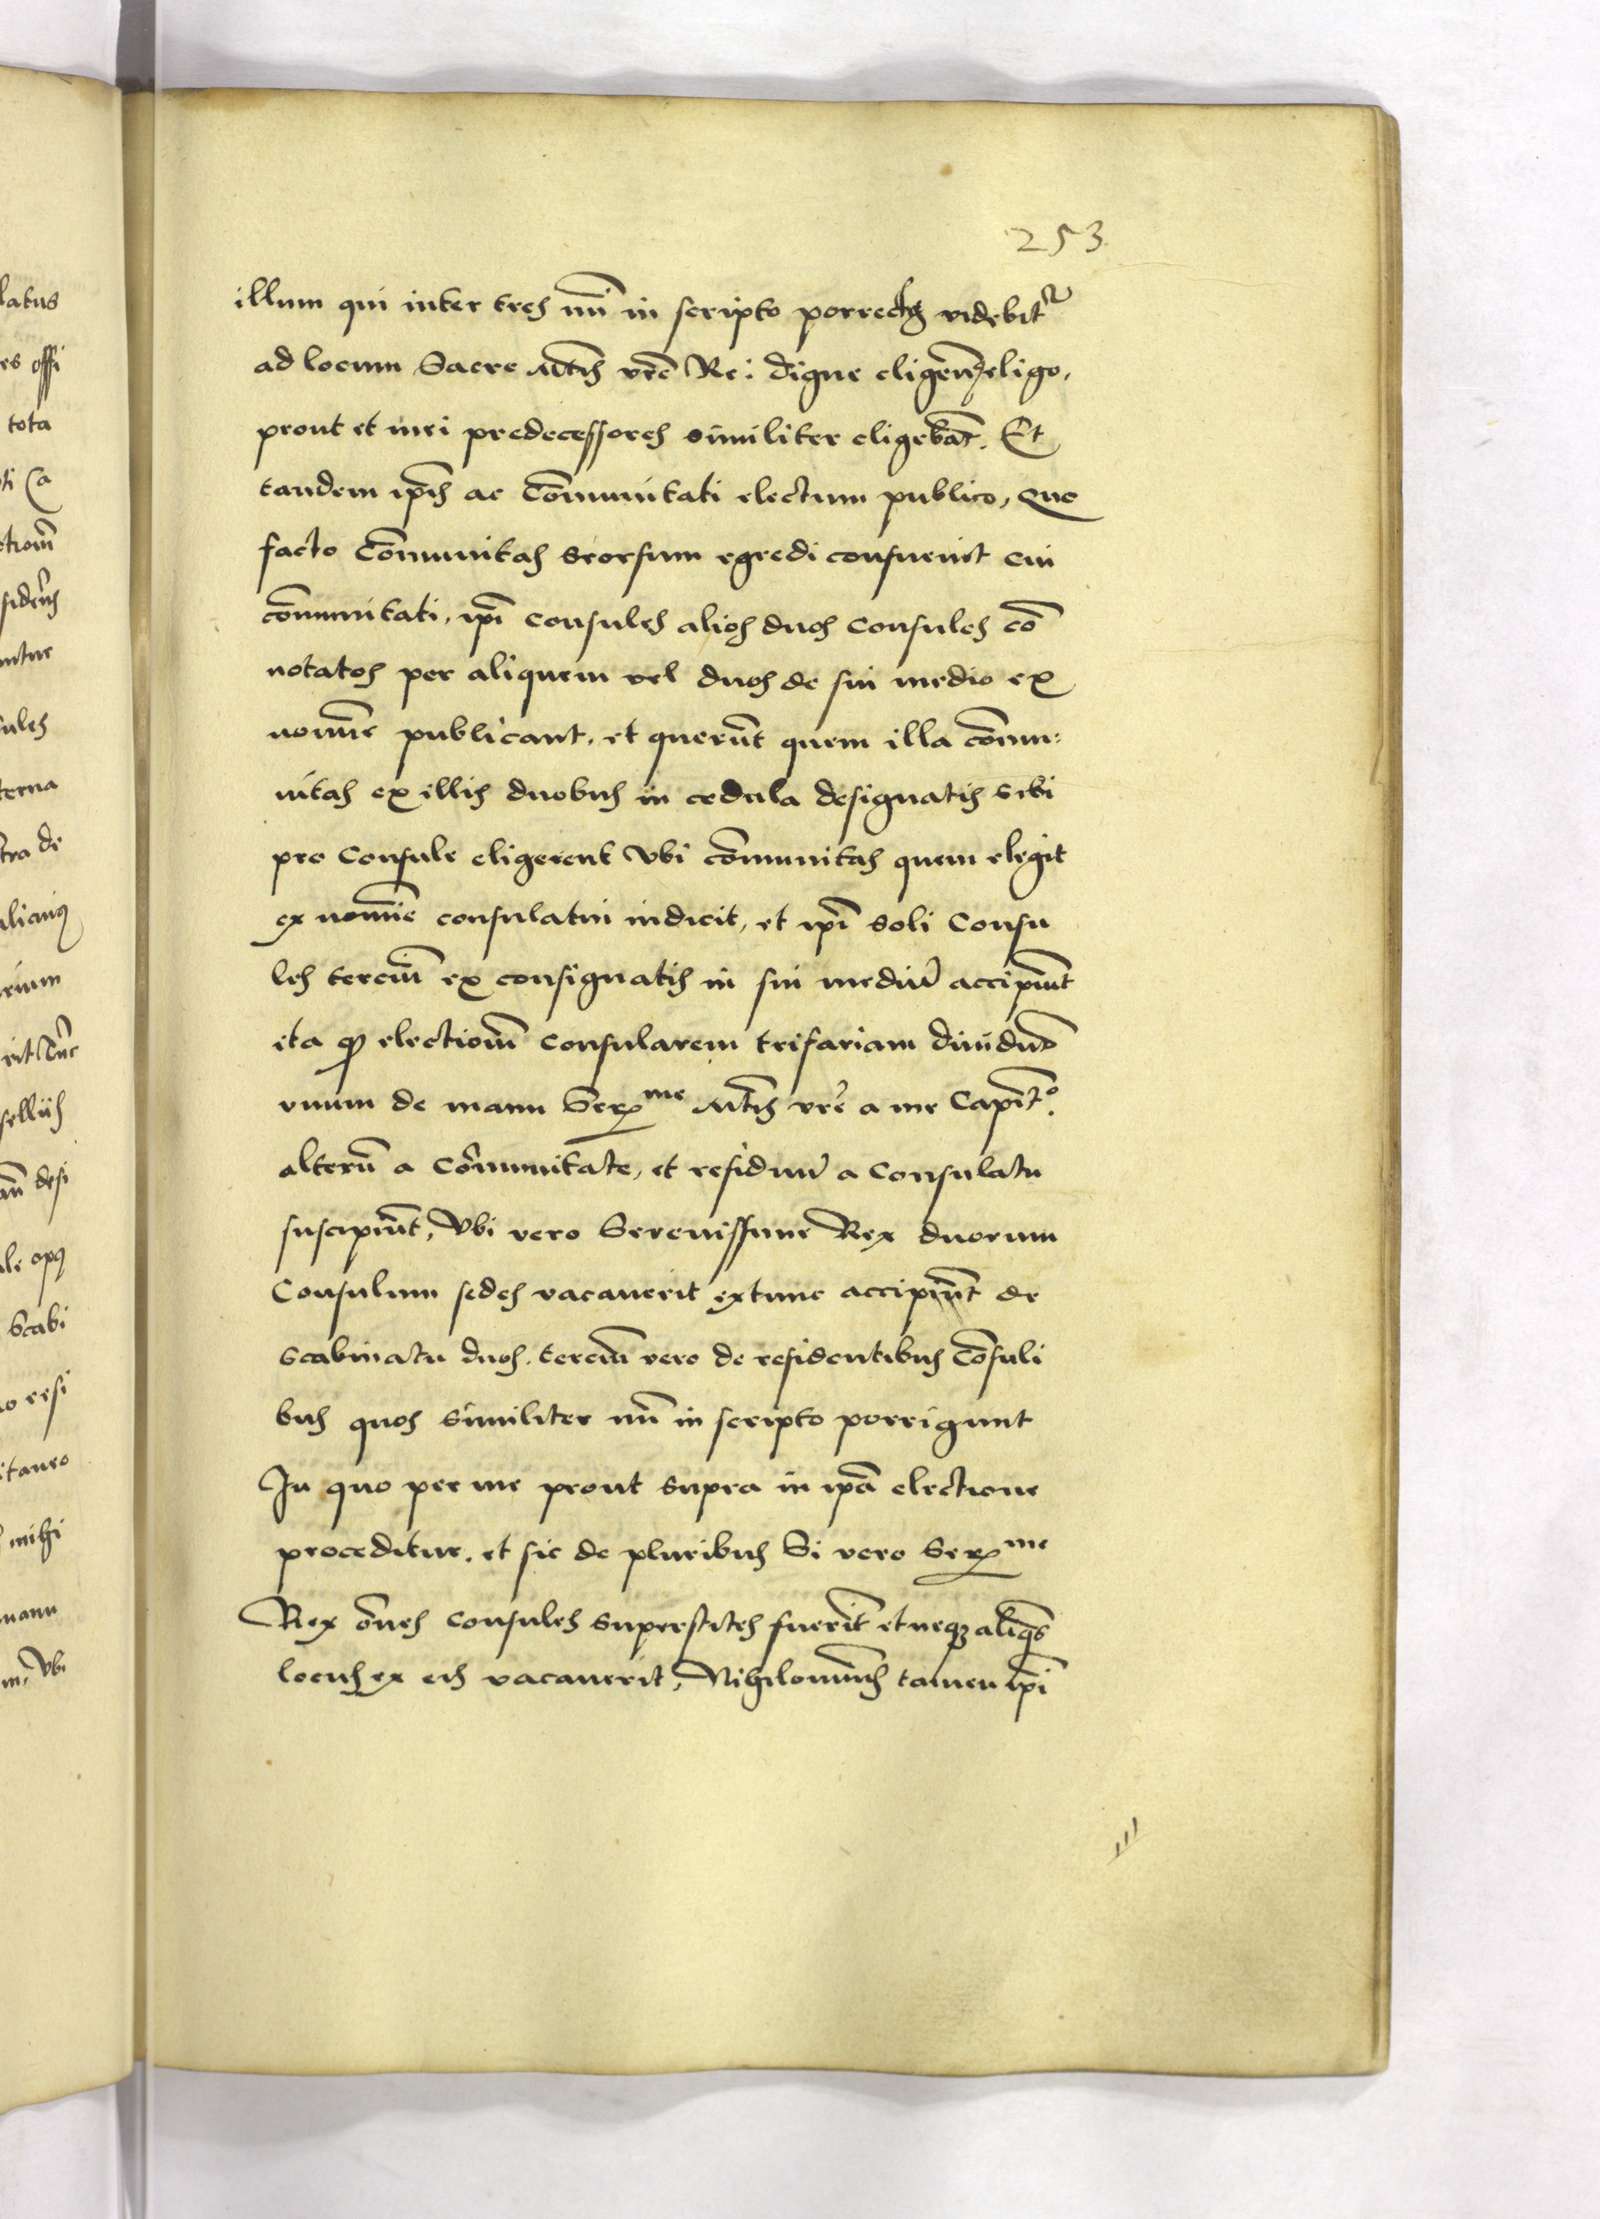 253
illum qui inter tres mi͠ in scripto porrectos videbit᷑
ad locum Sacre Mt͠is vr͠e Re: digne eligen͠ eligo,
prout et mei predecessores similiter eligeban͠t. Et
tandem ip͠is ac Com͠unitati electum publico, Quo
facto Com͠unitas seorsum egredi consueuit cui
com͠unitati, ip͠i consules alios duos consules co͠
notatos per aliquem vel duos de sui medio ex
nomi͠e publicant, et queru͠nt quem illa com͠u:
nitas ex illis duobus in cedula designatis sibi
pro Consule eligerent Vbi com͠unitas quem elegit
ex nomi͠e consulatui indicit, et ip͠i soli Consu
les terciu͠ ex consignatis in sui mediu͠ accipiu͠nt
ita q͠ electione͠ consularem trifariam diuidu͠t
vnum de manu Serme Mt͠is vr͠e a me Capit͠o.
alteru͠ a Com͠unitate, et residuu͠ a Consulatu
suscipiu͠nt, Vbi vero Serenissime Rex duorum
Consulum sedes vacauerit extunc accipiu͠nt de
scabinatu duos, terciu͠ vero de residentibus Co͠suli
bus quos similiter mi͠ in scripto porrigunt
In quo per me prout supra in ip͠a electione
proceditur, et sic de pluribus Si vero Serme
Rex om͠es consules superstites fueri͠t et neq; aliq͠s
locus ex eis vacauerit, Nihilomin͠s tamen ip͠i